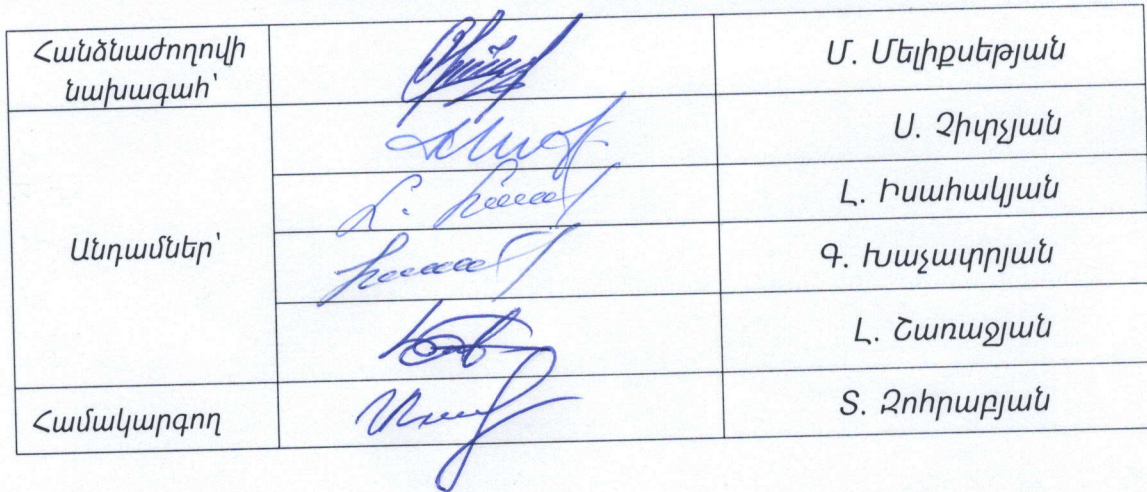 Հանձնաժողովի
նախագահ՝
Մ. Մելիքսեթյան
Ս. Չիտչյան
Լ. Իսահակյան
Անդամներ՝
Գ. Խաչատրյան
Լ. Շառաջյան
Համակարգող
Տ. Զոհրաբյան